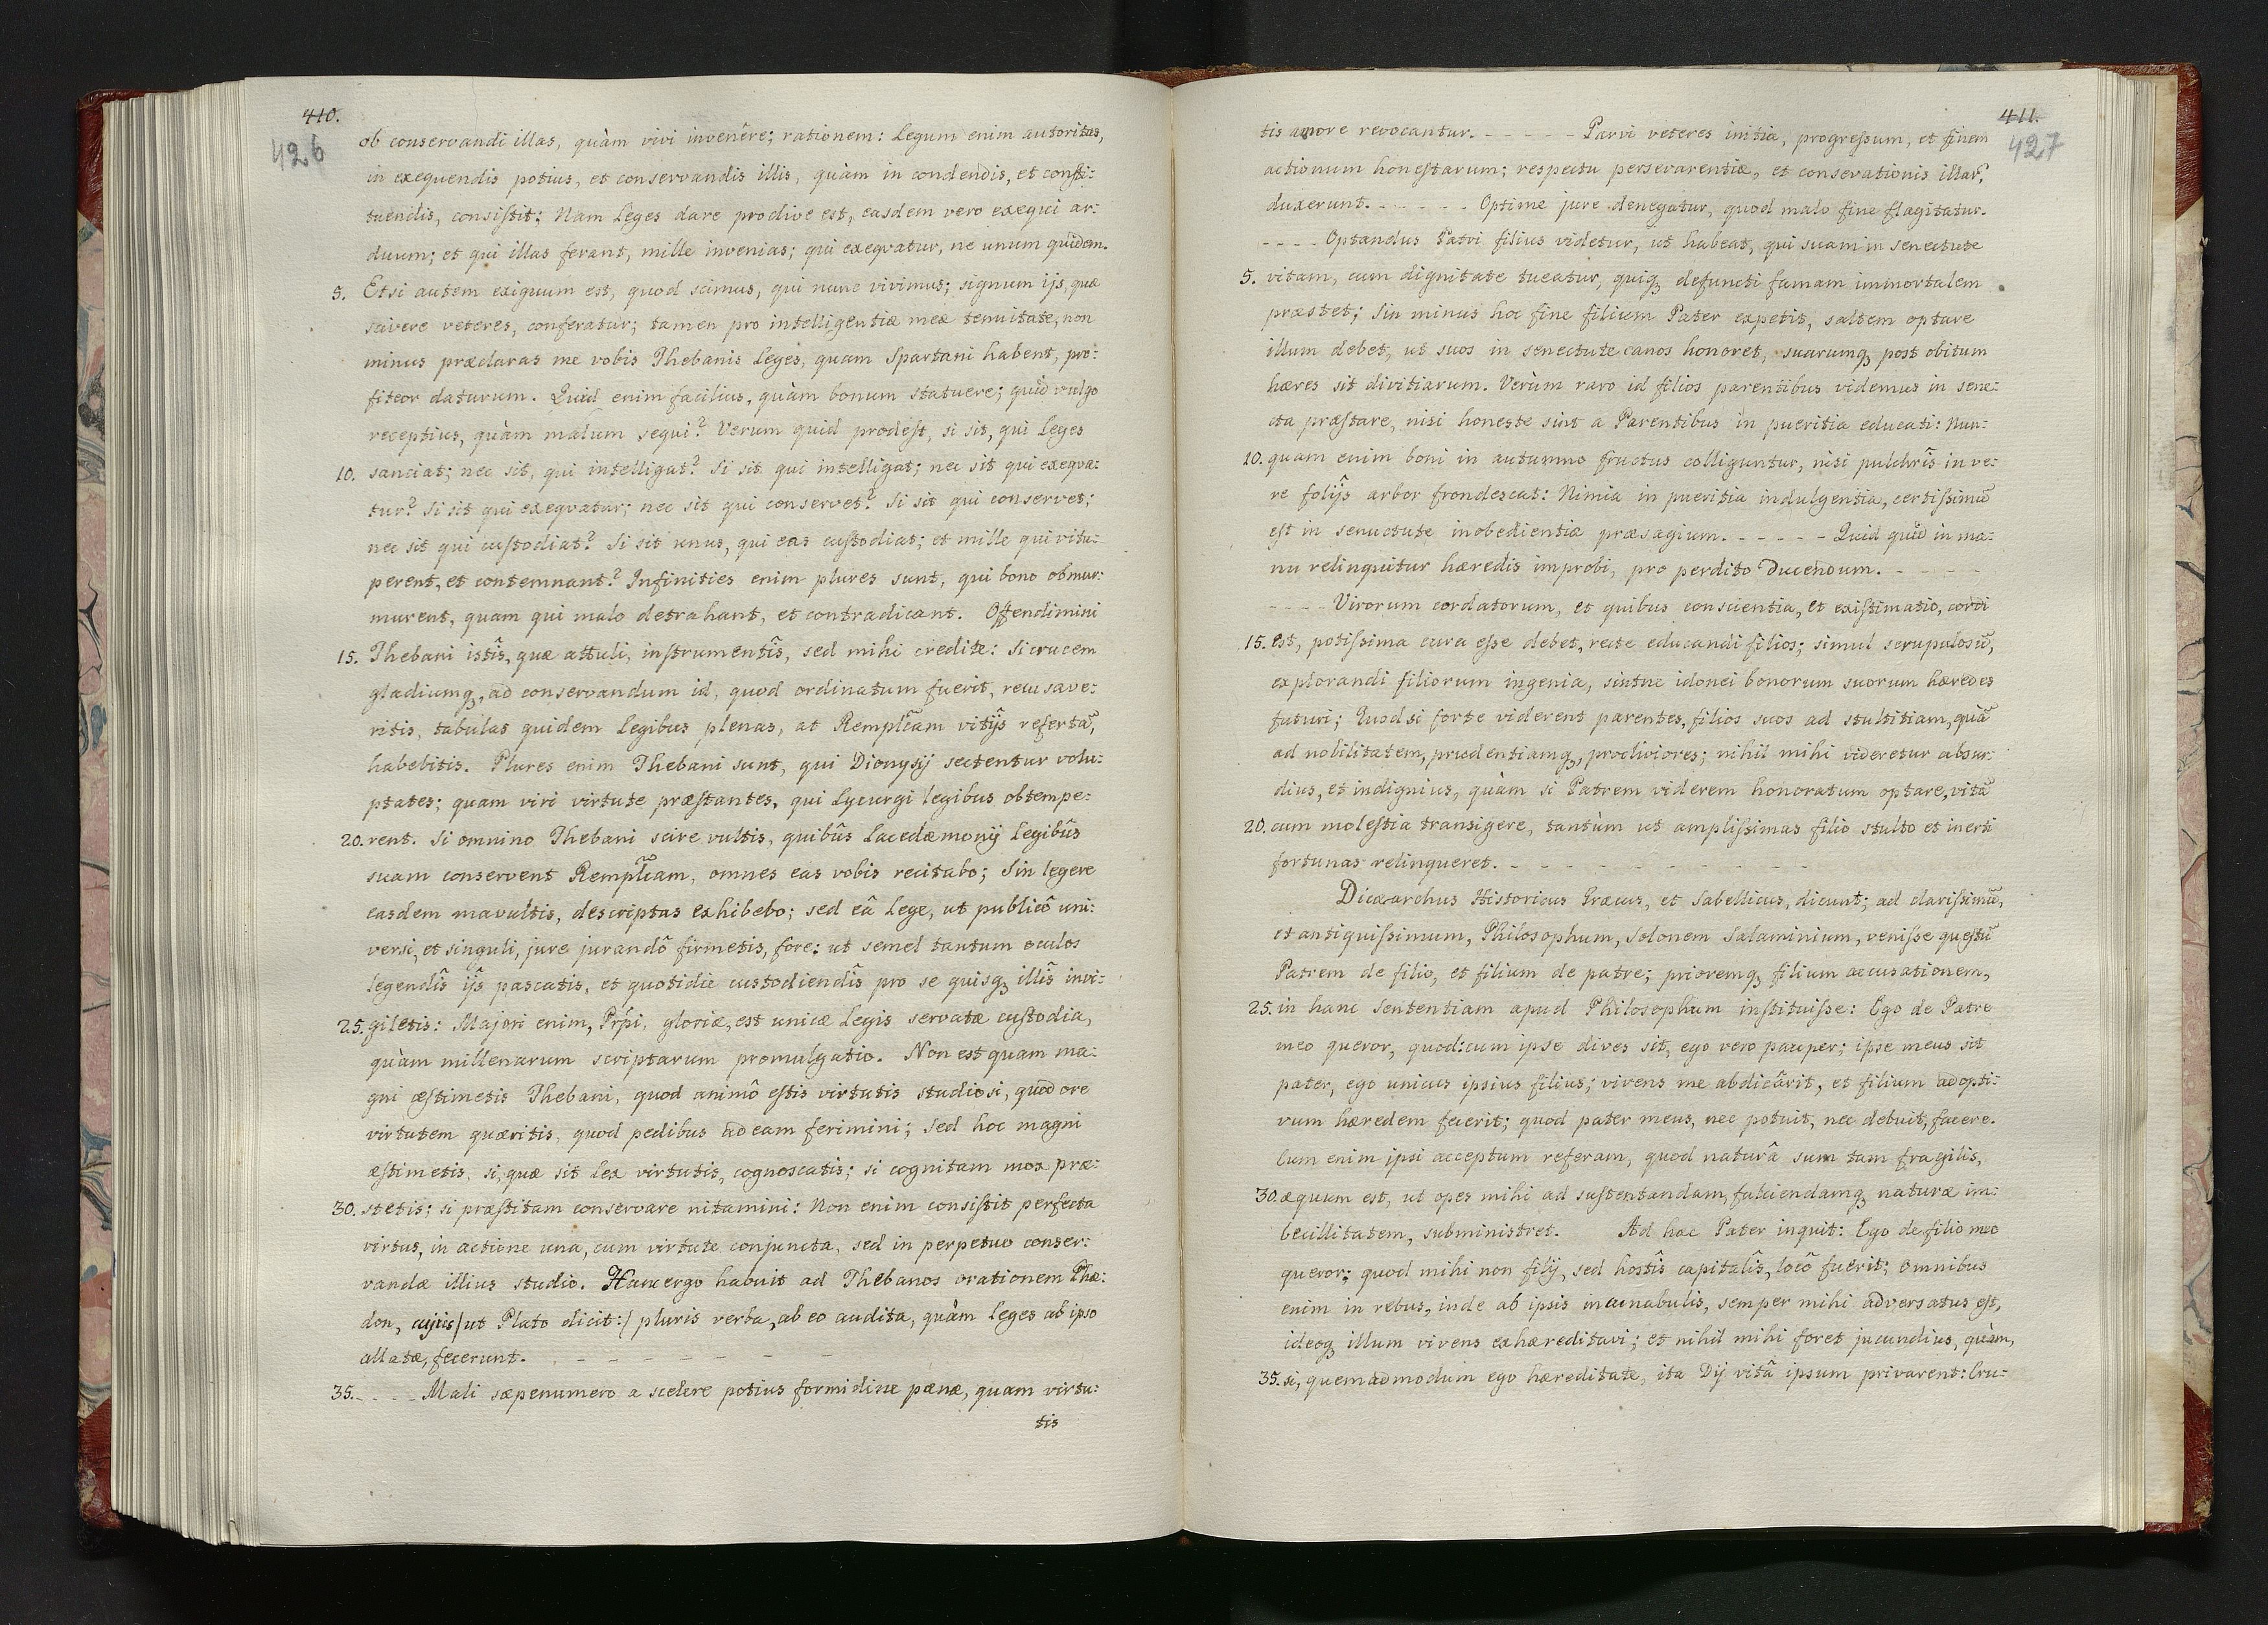 410.
426
ob conservandi illas, quàm vivi invenêre; rationem: Legum enim autoritas,
in exequendis potius, et conservandis illis, quàm in condendis, et consti:
tuendis, consistit: Nam Leges dare proclive est, easdem vero exequi ar:
duum; et qui illas ferant, mille invenias; qui exeqvatur, ne unum quidem.
5. Etsi autem exiguum est, quod scimus, qui nunc vivimus; signum ijs, quæ
scivere veteres, conferatur; tamen pro intelligentiæ meæ tenuitate, non
minus præclaras me vobis Thebanis Leges, quam Spartani habent, pro:
fiteor daturum. Quid enim facilius, quàm bonum statuere; quid vulgo
receptius, quàm malum sequi? Verum quid prodest, si sit, qui Leges
10. sanciat; nec sit, qui intelligat? Si sit qui intelligat; nec sit qui exeqva:
tur? Si sit qui exeqvatur; nec sit qui conservet? Si sit qui conservet;
nec sit qui custodiat? Si sit unus, qui eas custodias; et mille qui vitu:
perent, et contemnant? Infinities enim plures sunt, qui bono obmur:
murent, quam qui malo detrahant, et contradicant. Offendimini
15. Thebani istîs, quæ attuli, instrumentîs, sed mihi credite: Si crucem
gladiumq, ad conservandum id, quod ordinatum fuerit, recusave:
ritis, tabulas quidem Legibus plenas, at Remplicam vitijs refertã,
habebitis. Plures enim Thebani sunt, qui Dionysij sectentur volu:
ptates; quam viri virtute præstantes, qui Lycurgi legibus obtempe:
20. rent. Si omnino Thebani scire vultis, quibûs Lacedæmonij Legibûs
suam conservent Remplicam, omnes eas vobis recitabo; Sin legere
easdem mavultis, descriptas exhibebo; sed eâ Lege, ut publicô uni:
versi, et singuli, jure jurandô firmetis, fore: ut semel tantum oculos
legendîs ijs pascatis, et quotidie custodiendîs pro se quisq illîs invi:
25. giletis: Majori enim, Prpi, gloriæ, est unicæ Legis servatæ custodia,
quàm millenarum scriptarum promulgatio. Non est quam ma:
gni æstimetis Thebani, quod animô estis virtutis studiosi, quod ore
virtutem quæritis, quod pedibus ad eam ferimini; Sed hoc magni
æstimetis, si, quæ sit Lex virtutis, cognoscatis; si cognitam mox præ:
30. stetis; si præstitam conservare nitamini: Non enim consistit perfecta
virtus, in actione una, cum virtute conjuncta, sed in perpetuo conser:
vandæ illius studio. Hanc ergo habuit ad Thebanos orationem Phæ:
don, cujus/ut Plato dicit:/ pluris verba, ab eo audita, quàm Leges ab ipso
allatæ, fecerunt. - - - - - -
35. - - - Mali sæpenumero a scelere potius formidine pœnæ, quam virtu:
tis
411.
427
tis amore revocantur. - - - - - Parvi veteres initia, progressum, et finem
actionum honestarum; respectu perseverentiæ, et conservationis illar,
duxerunt. - - - - - Optime jure denegatur, quod malo fine flagitatur.
- - - - Optandus Patri filius videtur, ut habeat, qui suam in senectute
5. vitam, cum dignitate tueatur, quiq defuncti famam immortalem
præstet; Sin minus hoc fine filium Pater expetit, saltem optare
illum debet, ut suos in senectute canos honoret, suarumq post obitum
hæres sit divitiarum. Verùm raro id filios parentibus videmus in sene:
cta præstare, nisi honeste sint a Parentibus in pueritia educati: Nun:
10. quam enim boni in autumno fructus colliguntur, nisi pulchrîs in ve:
re folijs arbor frondescat: Nimia in pueritia indulgentia, certissimũ
est in senuctute inobedientiæ præsagium. - - - - - Quid quid in ma:
nu relinquitur hæredis improbi, pro perdito Ducendum. - - - -
- - - - Virorum cordatorum, et quibus conscientia, et existimatio, cordi
15. est, potissima cura esse debet, recte educandi filios; simul scrupulosũ,
explorandi filiorum ingenia, sintne idonei bonorum suorum hæredes
futuri; Quod si forte viderent parentes, filios suos ad stultitiam, quã
ad nobilitatem, prudentiamq, procliviores; nihil mihi videretur absur:
dius, et indignius, quàm si Patrem viderem honoratum optare, vitã
20. cum molestia transigere, tantùm ut amplissimas filio stulto et inerti
fortunas relinqueret. - - - - - - - -
Dicæarchus Historicus Græcus, et Sabellicus, dicunt; ad clarissimũ,
et antiquissimum, Philosophum, Solonem Salaminium, venisse questũ
Patrem de filio, et filium de patre; prioremq filium accusationem,
25. in hanc Sententiam apud Philosophum instituisse: Ego de Patre
meo queror, quod: cum ipse dives sit, ego vero pauper; ipse meus sit
pater, ego unicus ipsius filius; vivens me abdicârit, et filium adopti:
vum hæredem fecerit; quod pater meus, nec potuit, nec debuit, facere.
Cum enim ipsi acceptum referam, quod naturâ sum tam fragilis,
30. æquum est, ut opes mihi ad sustentandam, fulciendamq naturæ im:
becillitatem, subministret. Ad hæc Pater inquit: Ego de filio meo
queror; quod mihi non filij, sed hostîs capitalîs, locô fuerit; Omnibus
enim in rebus, inde ab ipsis incunabulis, semper mihi adversatus est,
ideoq illum vivens exhæreditavi; et nihil mihi foret jucundius, quàm,
35. si, quemadmodum ego hæreditate, ita Dij vitâ ipsum privarent: Cru: